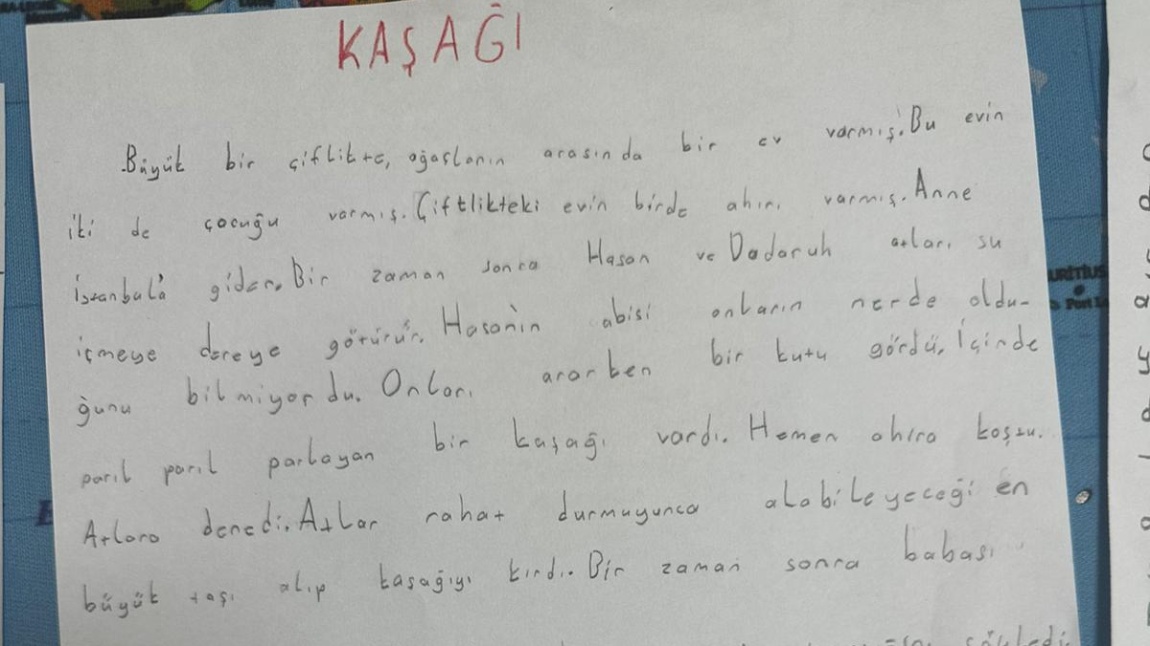 KAŞAĞI
Büyük bir çiflikte, ağaçların arasında bir ev varmış. Bu evin
iki de çocuğu varmış. Çiftlikteki evin birde ahırı varmış. Anne
İstanbul'a gider. Bir zaman sonra Hasan ve Dadaruh atları su
içmeye dereye götürür. Hasan'ın abisi onların nerde oldu-
ğunu bilmiyordu. Onları ararken bir kutu gördü. İçinde
parıl parıl parlayan bir kaşağı vardı. Hemen ahıra koşsu.
Atlara denedi. Atlar rahat durmuyunca alabileyeceği en
büyük taşı alıp kaşağıyı kırdı. Bir zaman sonra babası
söyledi.
URITIUS
Port